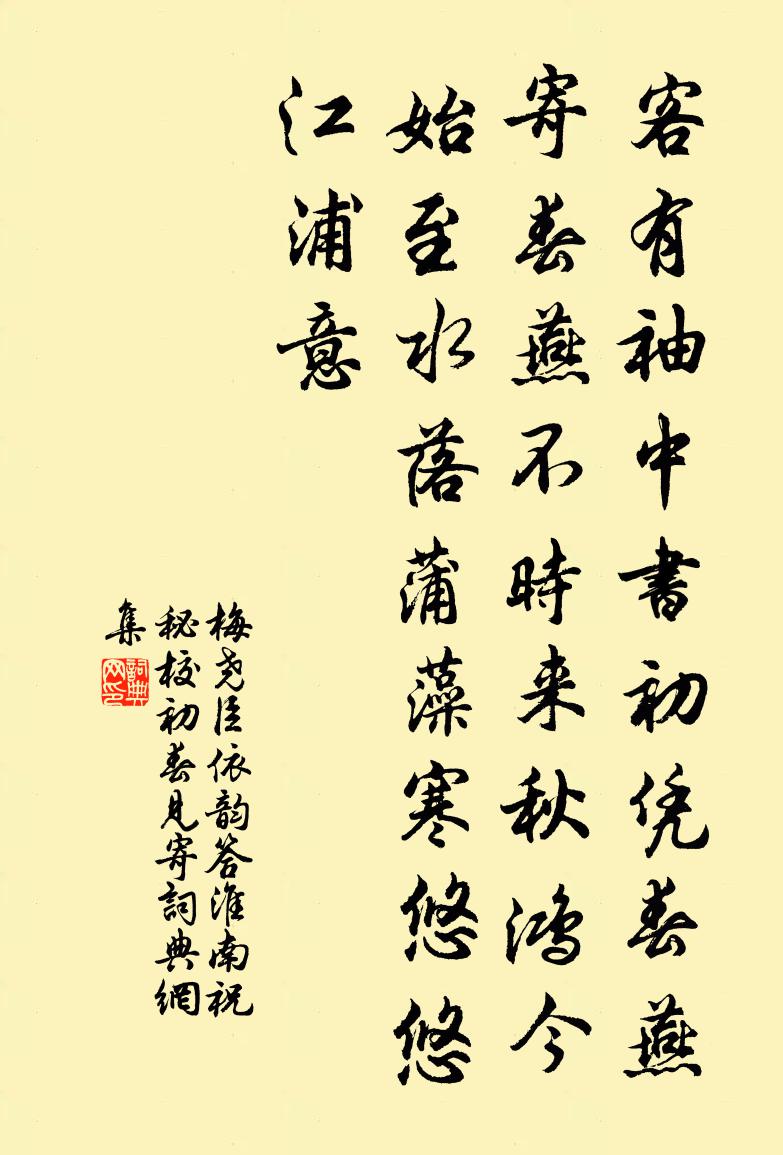 客有袖中書初凭春燕
寄春燕不時来秋鴻今
始至水落蒲藻寒悠悠
江浦意
梅尧臣依韵答淮南祝
秘校初春見寄詞典網
集
詞典
网印